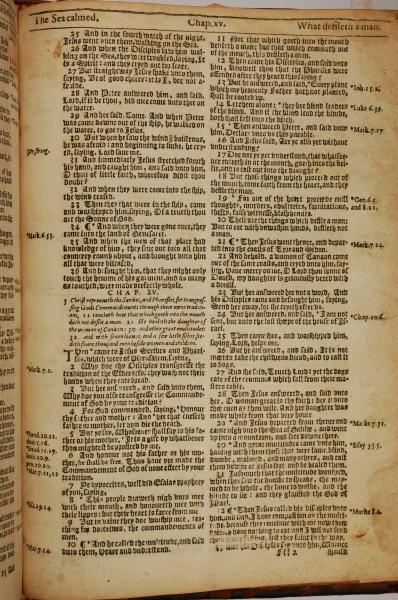 The Sea calmed.
Chap. xv.
What defileth a man.
25 And in the fourth watch of the night,
Iesus went vnto them, walking on the Sea.
26 And when the Disciples saw him wal-
king on the Sea, they were troubled, saying, It
is a Spirit: and they cryed out for feare.
27 But straightway Iesus spake vnto them,
saying, Be of good cheere: it is I, be not a-
fraid.
28 And Peter answered him, and said,
Lord, if it be thou, bid mee come vnto thee on
the water.
29 And hee said, Come. And when Peter
was come downe out of the ship, he walked on
the water, to goe to Iesus.
30 But when he saw the wind boisterous,
he was afraid: and beginning to sinke, he cry-
ed, saying, Lord saue me.
31 And immediatly Iesus stretched foorth
his hand, and caught him, and said vnto him,
O thou of little faith, wherefore didst thou
doubt?
32 And when they were come into the ship,
the wind ceased.
33 Then they that were in the ship, came
and worshipped him, saying, Of a trueth thou
art the Sonne of God.
34 And when they were gone ouer, they
came into the land of Genesaret.
35 And when the men of that place had
knowledge of him, they sent out into all that
countrey round about, and brought vnto him
all that were diseased,
36 And besought him, that they might only
touch the hemme of his garment, and as many
as touched, were made perfectly whole.
CHAP. XV.
THen came to Iesus Scribes and Phari-
ses, which were of Hierusalem, saying,
2 Why doe thy Disciples transgresse the
tradition of the Elders? for they wash not their
hands when they eate bread.
3 But hee answered, and said vnto them,
Why doe you also transgresse the Commande-
ment of God by your tradition?
4 For God commanded, saying, Honour
thy father and mother: And hee that curseth
father or mother, let him die the death.
5 But ye say, Whosoeuer shall say to his
father or his mother, It is a gift by whatsoeuer
thou mightest be profited by me,
6 And honour not his father or his mo-
ther, he shall be free. Thus haue yee made the
Commandement of God of none effect by your
tradition.
7 Ye hypocrites, well did Esaias prophecy
of you, saying,
8 This people draweth nigh vnto mee
with their mouth, and honoureth mee with
their lippes: but their heart is farre from me.
9 But in vaine they doe worship mee, tea-
ching for doctrines, the commandements of
men.
10 And he called the multitude, and said
vnto them, Heare and vnderstand.
Mark.6.53.
Mark.7.1.
11 Not that which goeth into the mouth
defileth a man: but that which commeth out
of the mouth, this defileth a man.
12 Then came his Disciples, and said vnto
him, Knowest thou that the Pharises were
offended after they heard this saying?
13 But he answered, and said, Euery plant
which my heauenly Father hath not planted,
shall be rooted vp.
14 Let them alone: they be blind leaders
of the blind. And if the blind lead the blinde,
both shall fall into the ditch.
15 Then answered Peter, and said vnto
him, Declare vnto vs this parable.
16 And Iesus said, Are ye also yet without
vnderstanding?
17 Doe not ye yet vnderstand, that whatsoe-
uer entreth in at the mouth, goeth into the bel-
lie, and is cast out into the draught?
18 But those things which proceed out of
the mouth, come forth from the heart, and they
defile the man.
19 For out of the heart proceede euill
thoughts, murders, adulteries, fornications,
thefts, false witnesse, blasphemies.
20 These are the things which defile a man:
But to eate with vnwashen hands, defileth not
a man.
21 Then Iesus went thence, and depar-
ted into the coasts of Tyre and Sidon.
22 And behold, a woman of Canaan came
out of the same coasts, and cryed vnto him, say-
ing, Haue mercy on me, O Lord thou sonne of
Dauid, my daughter is grieuously vexed with
a deuill.
23 But hee answered her not a word. And
his Disciples came and besought him, saying,
Send her away, for she cryeth after vs.
24 But hee answered, and said, I am not
sent, but vnto the lost sheepe of the house of Is-
rael.
25 Then came shee, and worshipped him,
saying, Lord, helpe me.
26 But he answered, and said, It is not
meet to take the childrens bread, and to cast it
to dogs.
27 And she said, Trueth Lord: yet the dogs
eate of the crummes which fall from their ma-
sters table.
28 Then Iesus answered, and said vnto
her, O woman, great is thy faith: be it vnto
thee euen as thou wilt. And her daughter was
made whole from that very houre.
29 And Iesus departed from thence, and
came nigh vnto the Sea of Galilee, and went
vp into a mountaine, and sate downe there.
30 And great multitudes came vnto him,
hauing with them those that were lame, blind,
dumbe, maimed, and many others, and cast
them downe at Iesus feet, and he healed them:
31 Insomuch that the multitude wondred,
when they saw the dumbe to speake, the may-
med to be whole, the lame to walke, and the
blinde to see: and they glorified the God of
Israel.
32 Then Iesus called his disciples vnto
him, and said, I haue compassion on the multi-
tude, because they continue with me now three
dayes, and haue nothing to eat: and I will not send
them away fasting, lest they faint in the way.
33 And his Disciples say vnto him, Whence
should
Luke 6.39.
Mark.7.17.
Mark.7.24.
Mark.7.31.
Esay 35.5.
Marke 8.1.